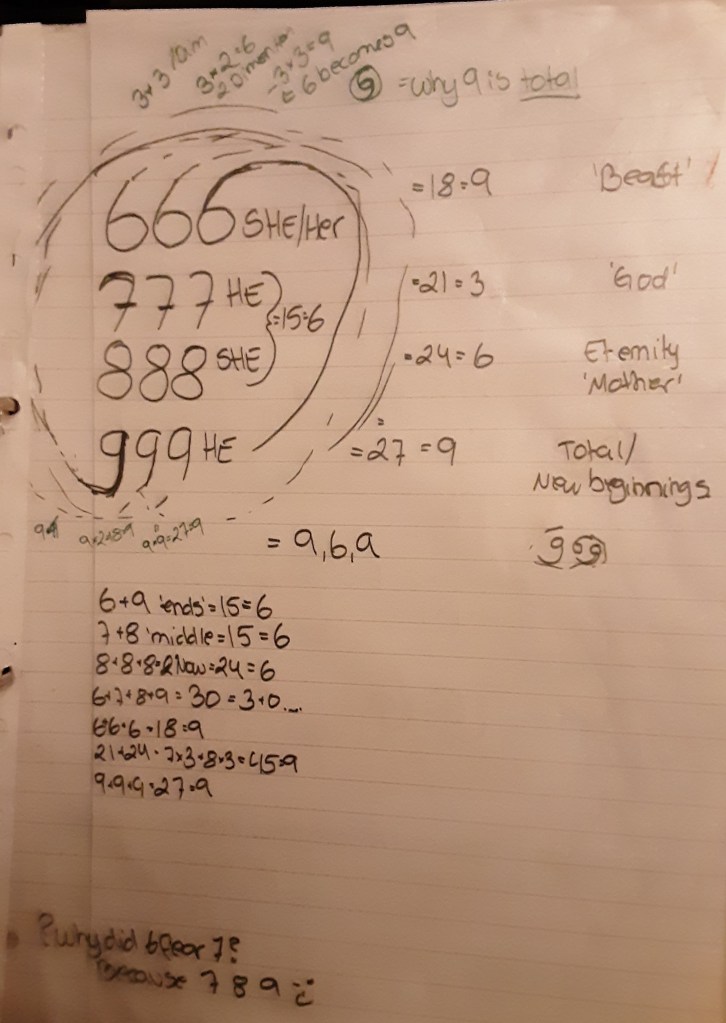 3x3 1 Dim
3x2=6
2Dimension
3x3=9
6 becomes 9
9 = why 9 is total
666 SHE/Her =18=9 'Beast'
777 HE =21=3 'God'
=15=6
888 SHE =24=6 Eternity
'Mother'
999 HE =27=9 Total/
New beginnings
9x2=18=9 9+9=27=9
= 9,6,9 969
6+9 'ends'=15=6
7+8 'middle=15=6
8+8+8=2Now=24=6
6+7+8+9=30=3+0...
6+6+6=18=9
21+24=7x3+8x3=45=9
9+9+9=27=9
?why did 6 fear 7?
Because 7 8 9 :)